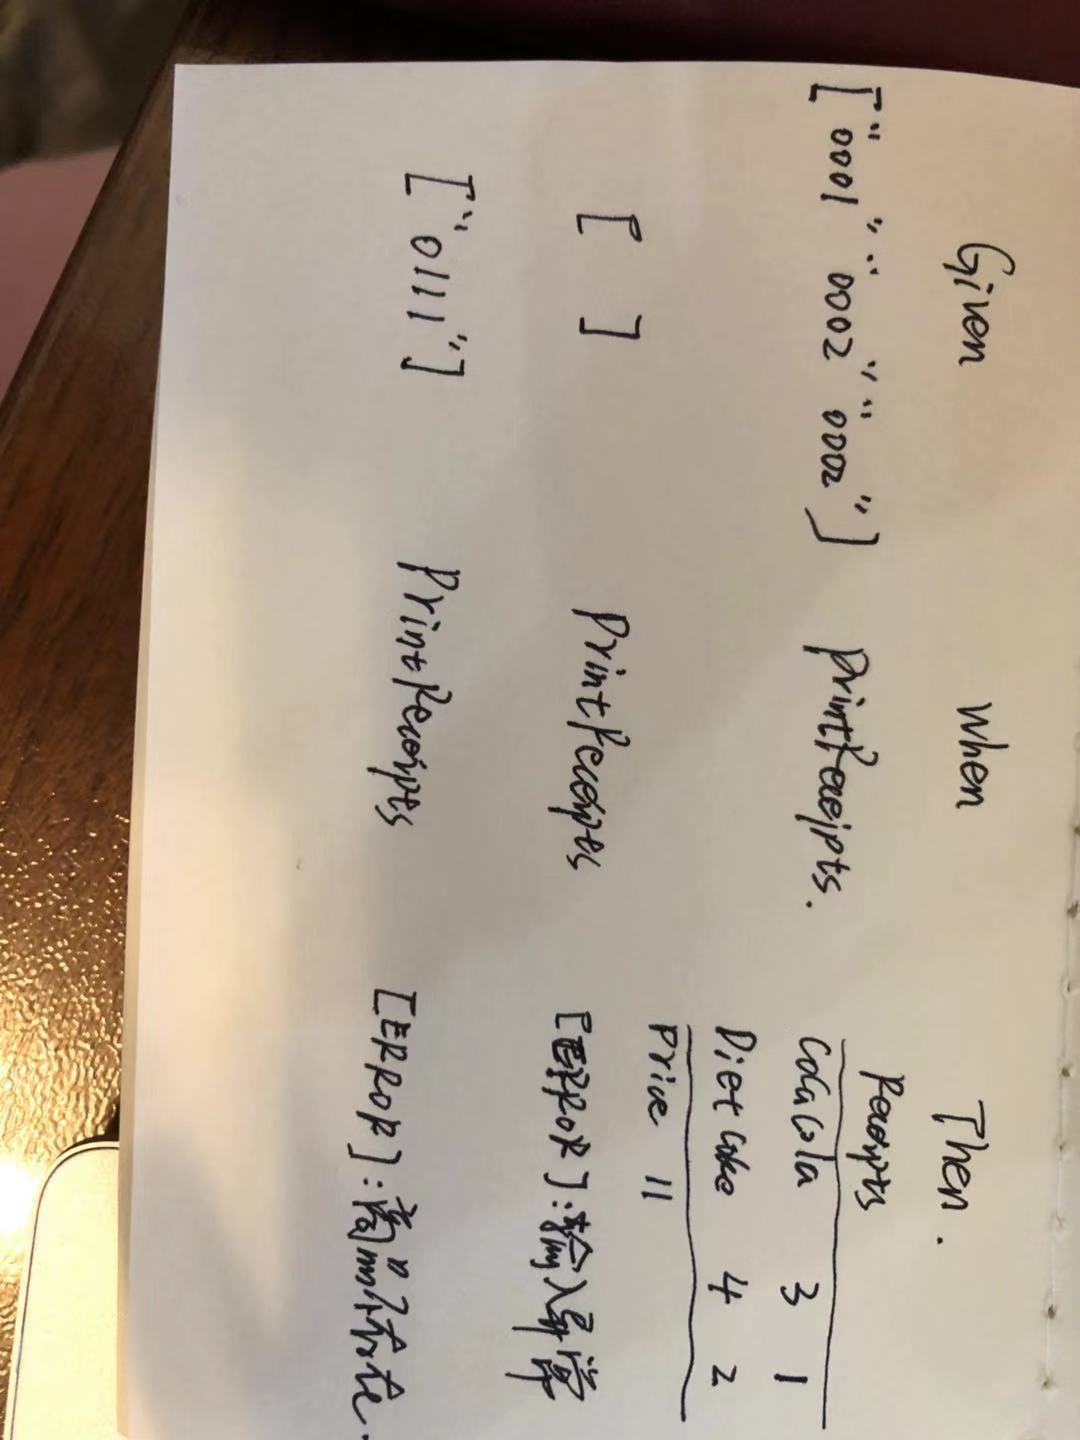 Given When Then.
["0001" "0002" "0002"] PrintReceipts. Receipts
CocaCola 3 1
Diet Coke 4 2
Price 11
[ ] PrintReceipts [ERROR]:输入异常
["0111"] PrintReceipts [ERROR]:商品不存在.